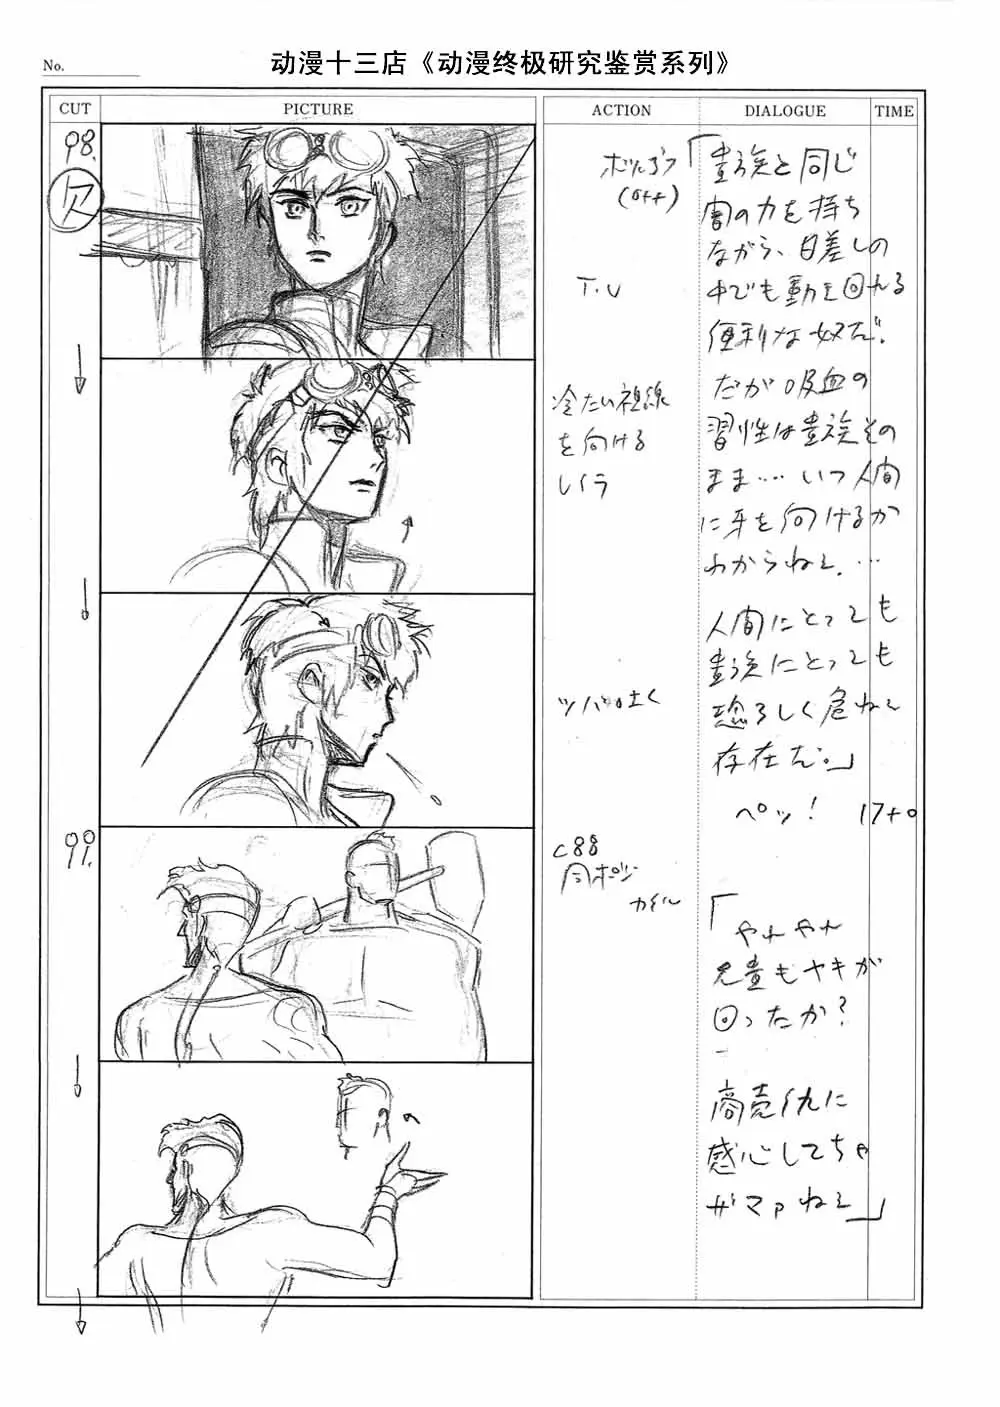 No.
动漫十三店《动漫终极研究鉴赏系列》
CUT
PICTURE
ACTION
DIALOGUE
TIME
98.
欠
ボルゴフ
(off)
T.U
「貴族と同じ
闇の力を持ち
ながら、日差しの
中でも動き回れる
便利な奴だ!
冷たい視線
を向ける
レイラ
だが吸血の
習性は貴族その
まま……いつ人間
に牙を向けるか
わからねえ…
人間にとっても
貴族にとっても
恐ろしく危ねえ
存在だ。」
ツバ吐く
ペッ!
17+0
99.
C88
同ポジ
カイル
「やれやれ
兄貴もヤキが
回ったか?
商売仇に
感心してちゃ
ザマァねえ」